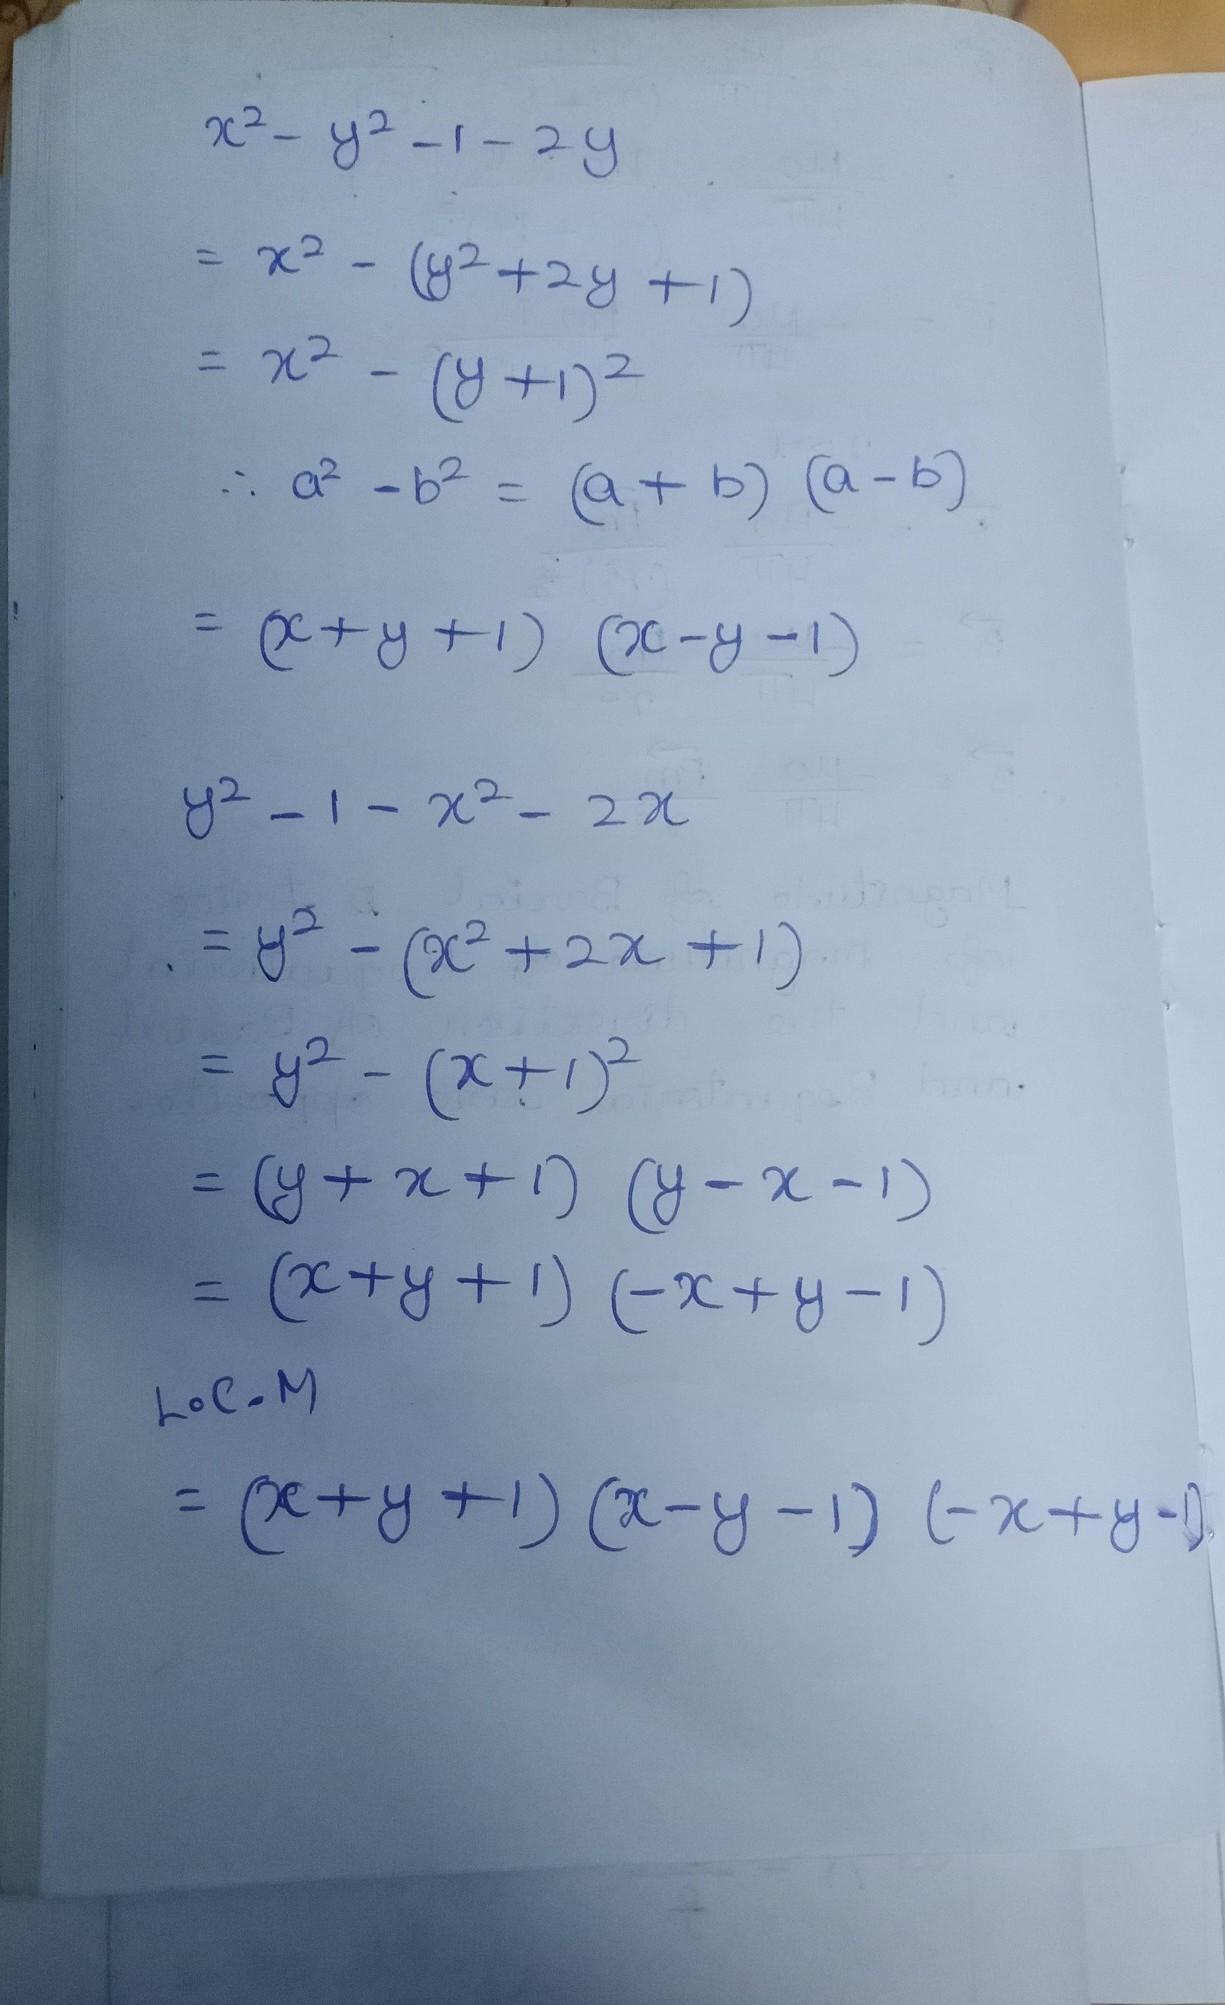 x² - y² - 1 - 2y
= x² - (y² + 2y + 1)
= x² - (y + 1)²
∴ a² - b² = (a + b) (a - b)
= (x + y + 1) (x - y - 1)
y² - 1 - x² - 2x
= y² - (x² + 2x + 1)
= y² - (x + 1)²
= (y + x + 1) (y - x - 1)
= (x + y + 1) (-x + y - 1)
L.C.M
= (x + y + 1) (x - y - 1) (-x + y - 1)